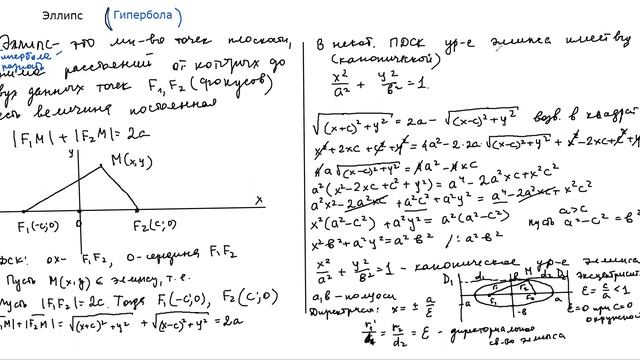 Эллипс (Гипербола)
Эллипс - это мн-во точек плоскости,
гипербола
разность
расстояний от которых до
двух данных точек F₁, F₂ (фокусов)
есть величина постоянная
|F₁M| + |F₂M| = 2a
y
M(x,y)
x
F₁(-c;0) 0 F₂(c;0)
ПДСК: ox - F₁F₂, O - середина F₁F₂
Пусть M(x,y) ∈ эллипсу, т.е.
Пусть |F₁F₂| = 2c. Тогда F₁(-c;0), F₂(c;0)
|F₁M| + |F₂M| = √((x+c)²+y²) + √((x-c)²+y²) = 2a
В некот. ПДСК ур-е эллипса имеет вид
(канонической)
x²/a² + y²/b² = 1.
√((x+c)²+y²) = 2a - √((x-c)²+y²) возв. в квадрат
x² + 2xc + c² + y² = 4a² - 2·2a √((x-c)²+y²) + x² - 2xc + c² + y²
4a √((x-c)²+y²) = 4a² - 4xc
a²(x² - 2xc + c² + y²) = a⁴ - 2a²xc + x²c²
a²x² - 2a²xc + a²c² + a²y² = a⁴ - 2a²xc + x²c²
x²(a²-c²) + a²y² = a²(a²-c²) a>c
пусть a²-c² = b²
x²b² + a²y² = a²b² /: a²b²
x²/a² + y²/b² = 1 - каноническое ур-е эллипса
a, b - полуоси
Директрисы: x = ± a/ε
D₁ d₁ b M d₂ D₂
r₁ r₂
-a a
-b
Эксцентриситет
ε = c/a < 1
ε=0 при c=0
окружность
r₁/d₁ = r₂/d₂ = ε - директориальное
св-во эллипса